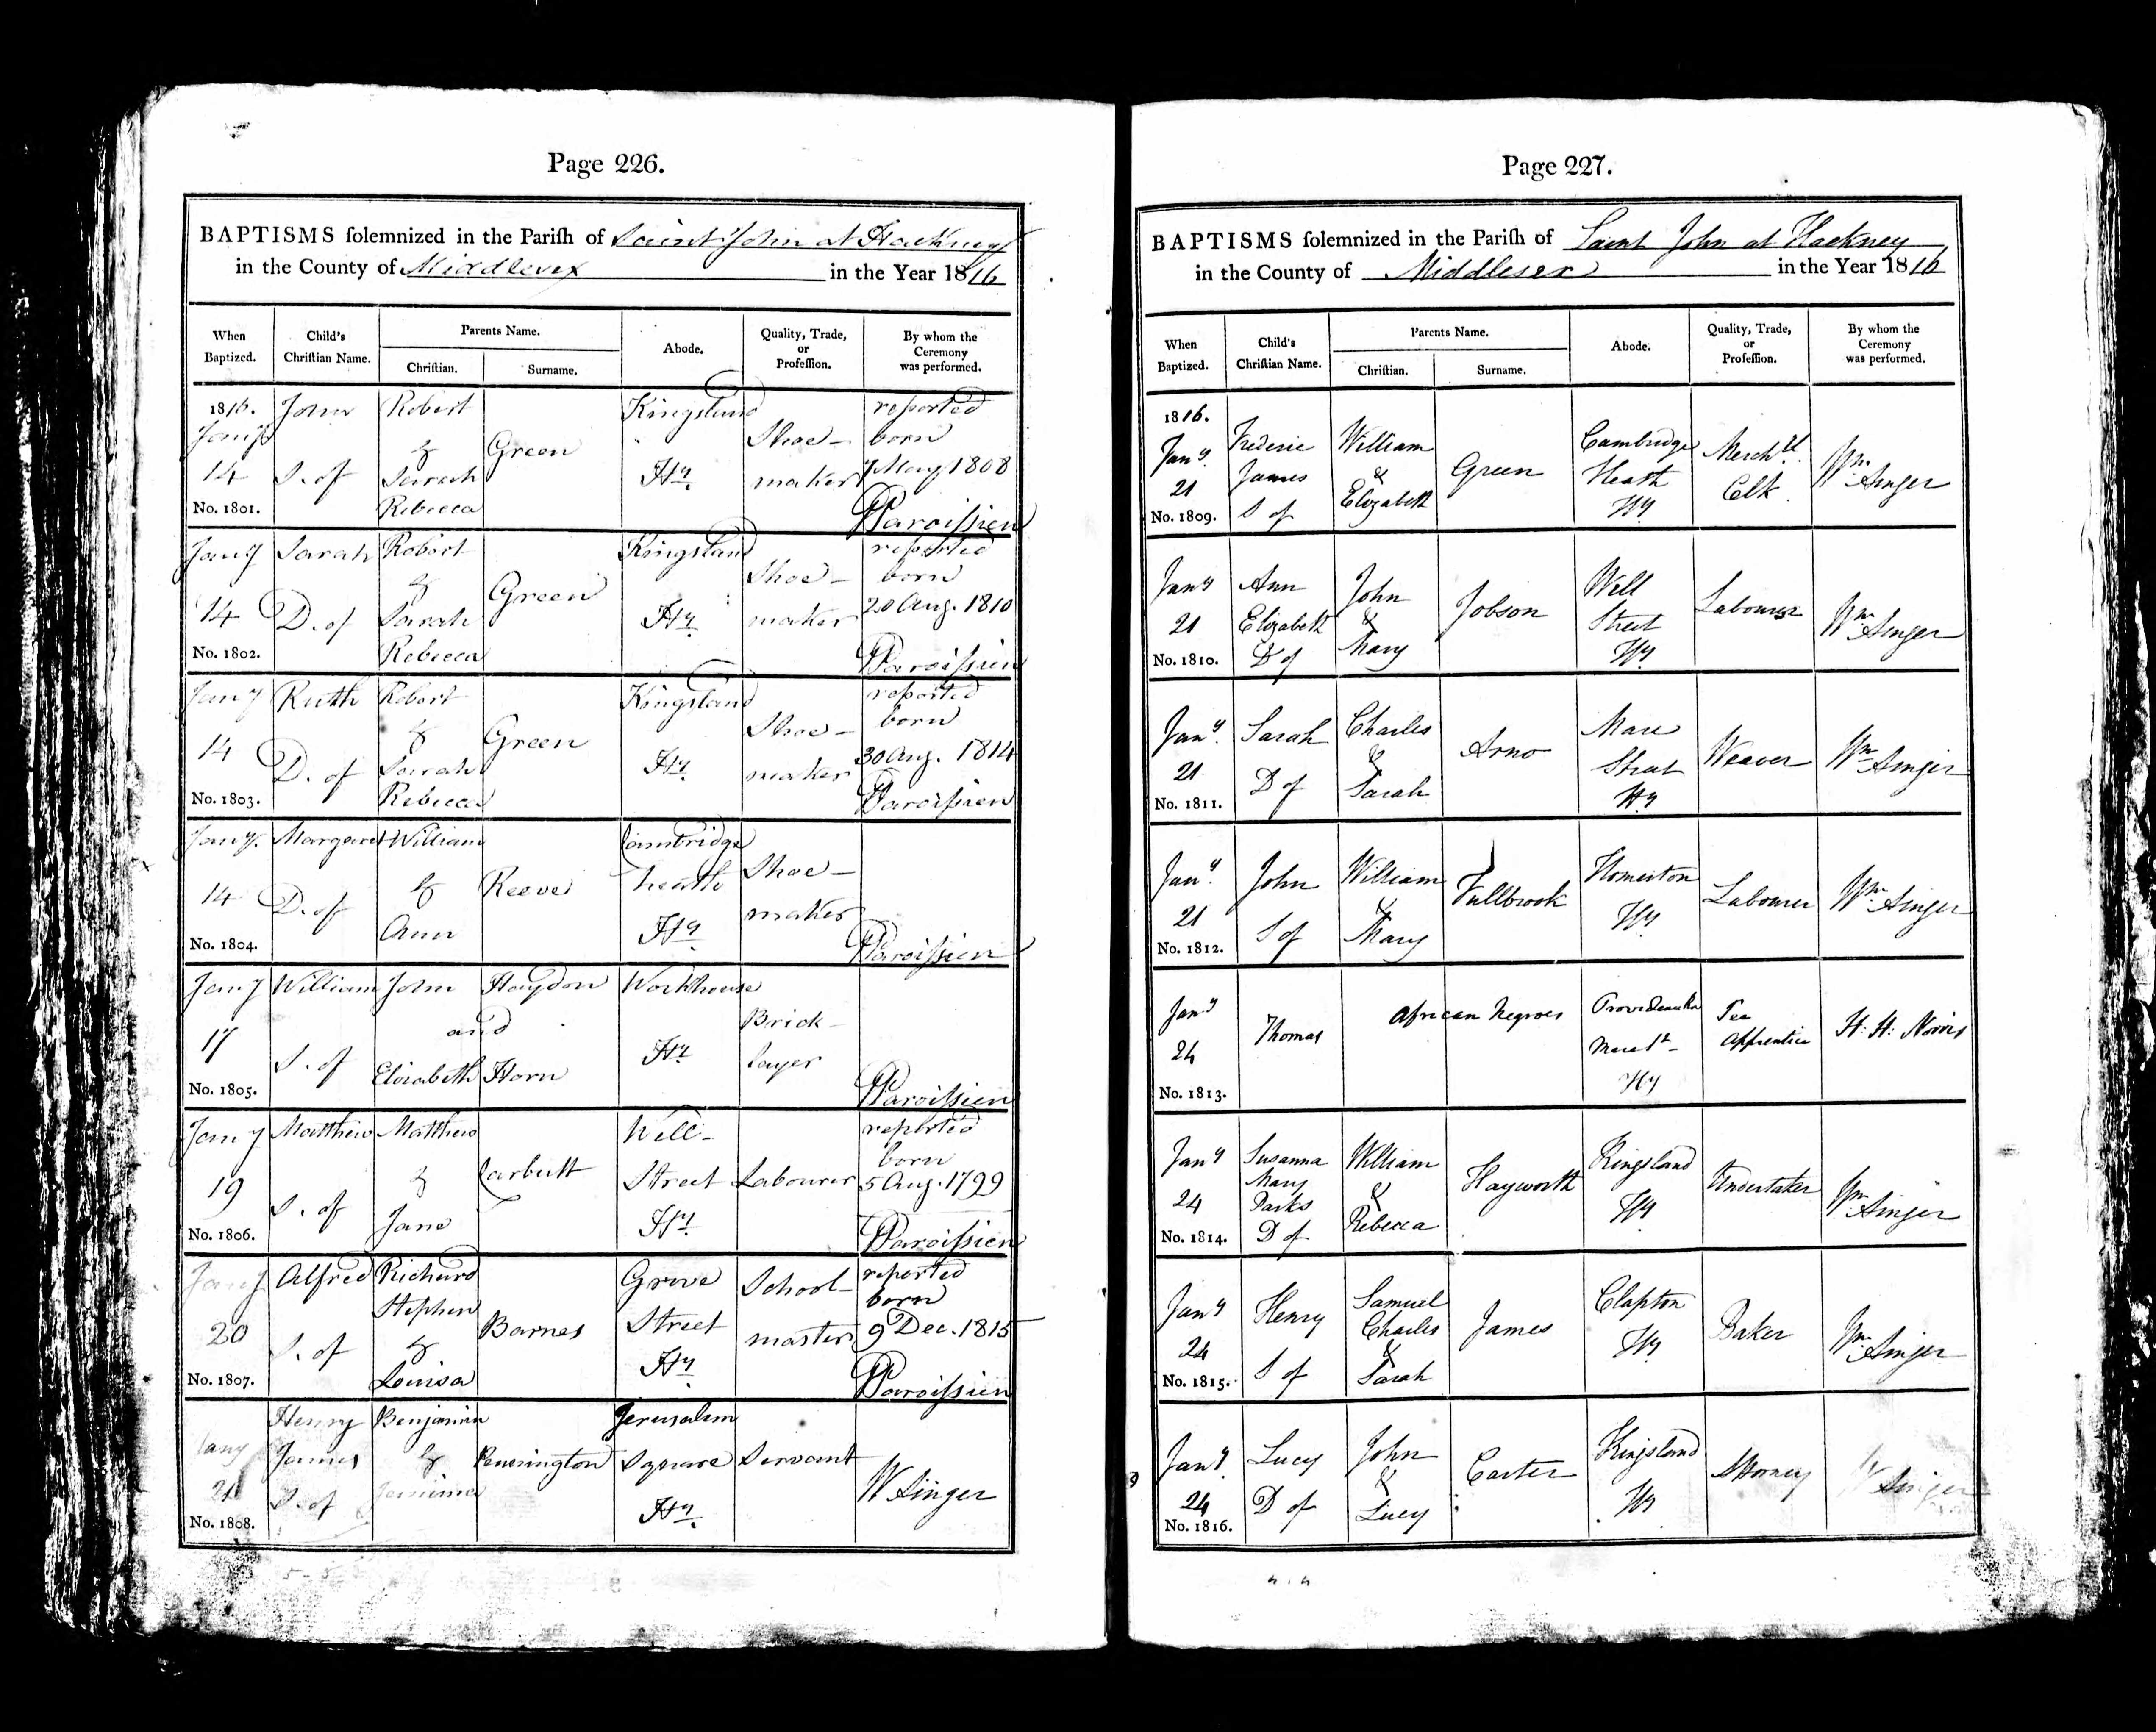 Page 226.
BAPTISMS ſolemnized in the Pariſh of Saint John at Hackney
in the County of Middlesex in the Year 1816
When Baptized.
Child's Chriſtian Name.
Parents Name.
Chriſtian.
Surname.
Abode.
Quality, Trade, or Profeſſion.
By whom the Ceremony was performed.
1816. Jany 14 No. 1801.
John S. of
Robert & Sarah Rebecca
Green
Kingsland Hy.
Shoe-maker
reported born 7 May 1808 Paroiſsien
Jany 14 No. 1802.
Sarah D. of
Robert & Sarah Rebecca
Green
Kingsland Hy.
Shoe-maker
reported born 20 Aug. 1810 Paroiſsien
Jany 14 No. 1803.
Ruth D. of
Robert & Sarah Rebecca
Green
Kingsland Hy.
Shoe-maker
reported born 30 Aug. 1814 Paroiſsien
Jany. 14 No. 1804.
Margaret D. of
William & Ann
Reeve
Cambridge heath Hy.
Shoe-maker
Paroiſsien
Jany 17 No. 1805.
William S. of
John and Elizabeth
Haydon Horn
Workhouse Hy.
Brick-layer
Paroiſsien
Jany 19 No. 1806.
Matthew S. of
Matthew & Jane
Carbutt
Well-Street Hy.
Labourer
reported born 5 Aug. 1799 Paroiſsien
Jany 20 No. 1807.
Alfred S. of
Richard Stephen & Louisa
Barnes
Grove Street Hy.
School-master
reported born 9 Dec. 1815 Paroiſsien
Jany 21 No. 1808.
Henry James S. of
Benjamin & Jemima
Pennington
Jerusalem Square Hy.
Servant
W Singer
Page 227.
BAPTISMS ſolemnized in the Pariſh of Saint John at Hackney
in the County of Middlesex in the Year 1816
When Baptized.
Child's Chriſtian Name.
Parents Name.
Chriſtian.
Surname.
Abode.
Quality, Trade, or Profeſſion.
By whom the Ceremony was performed.
1816. Jany. 21 No. 1809.
Frederic James S of
William & Elizabeth
Green
Cambridge Heath Hy
Mercht. Clk.
Wm Singer
Jany 21 No. 1810.
Ann Elizabeth D of
John & Mary
Jobson
Well Street Hy
Labourer
Wm Singer
Jany. 21 No. 1811.
Sarah D of
Charles & Sarah
Arno
Mare Street Hy
Weaver
Wm Singer
Jany. 21 No. 1812.
John S of
William & Mary
Fullbrook
Homerton Hy
Labourer
Wm Singer
Jany 24 No. 1813.
Thomas
African Negroes
Mare St Hy
Apprentice
H. H. Norris
Jany 24 No. 1814.
Susanna Mary Parks D of
William & Rebecca
Hayworth
Kingsland Hy
Undertaker
Wm Singer
Jany 24 No. 1815.
Henry S of
Samuel Charles & Sarah
James
Clapton Hy
Baker
Wm Singer
Jany. 24 No. 1816.
Lucy D of
John & Lucy
Carter
Kingsland Hy
Attorney
W Singer